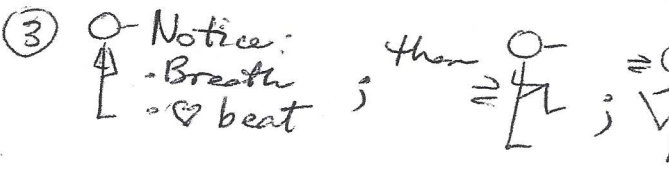 3 Notice:
· Breath
· ♡ beat ; then ⇌ ; ⇌